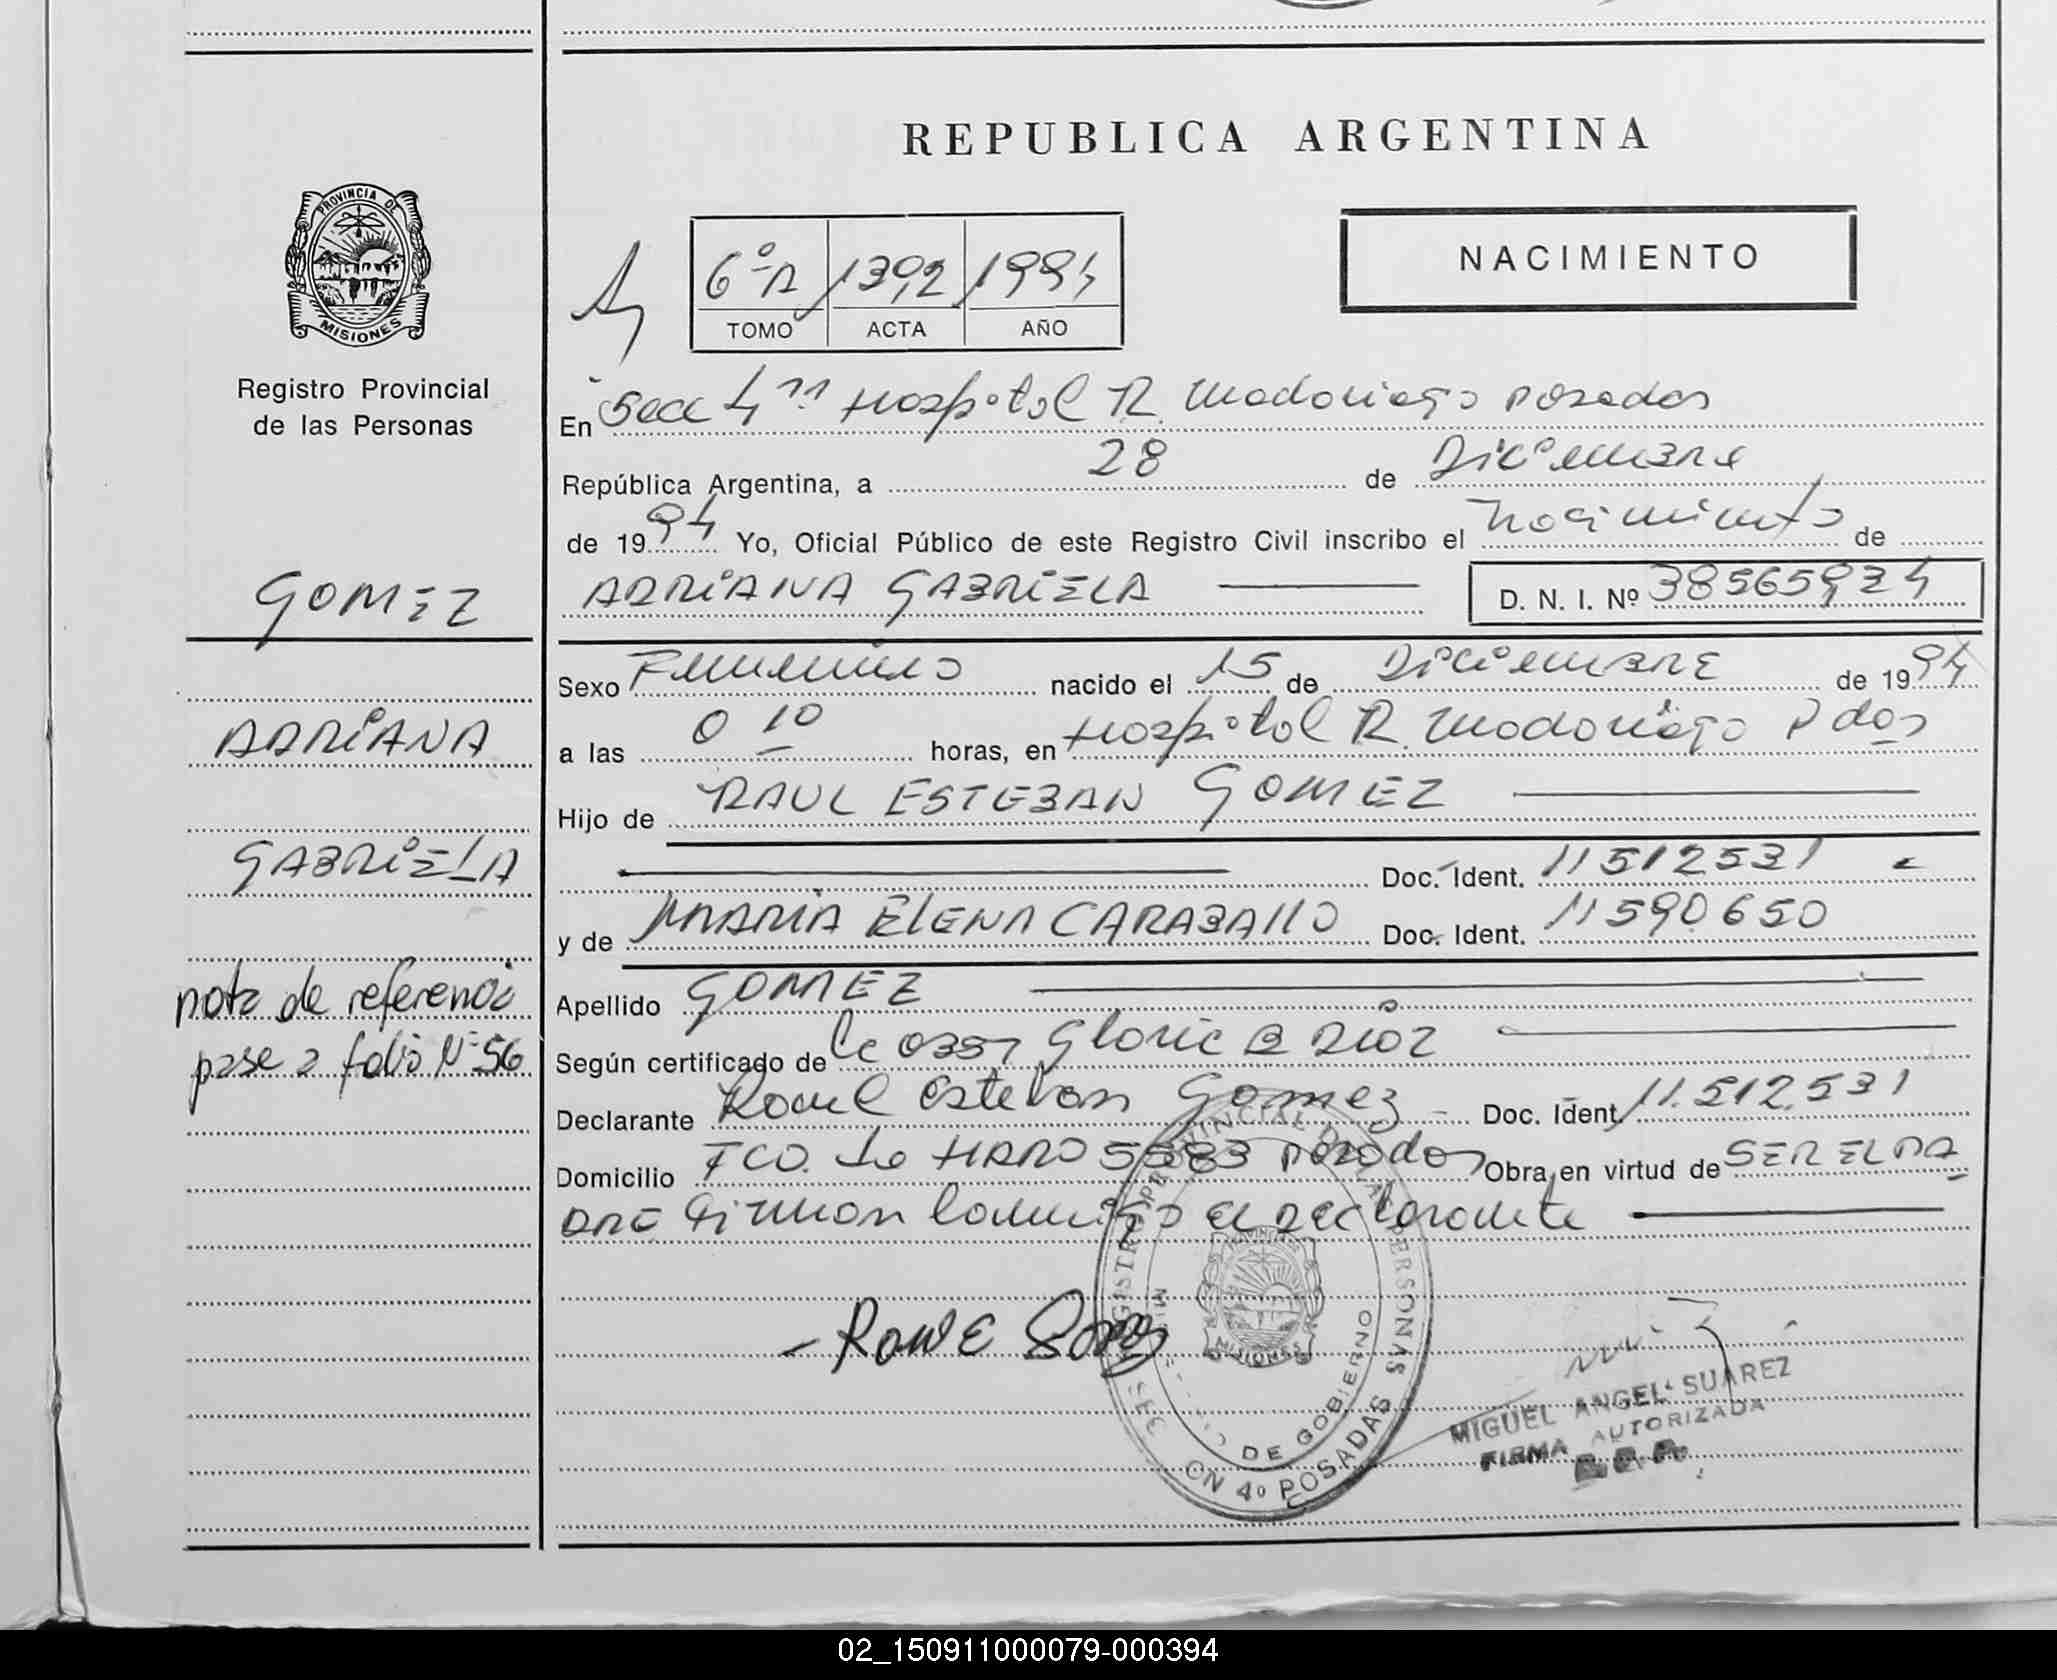 REPUBLICA ARGENTINA
PROVINCIA DE
MISIONES
Registro Provincial
de las Personas
NACIMIENTO
6º A 1392 1994
TOMO ACTA AÑO
En Secc 4ta Hospital R. Madariaga Posadas
República Argentina, a 28 de Diciembre
de 1994 Yo, Oficial Público de este Registro Civil inscribo el Nacimiento de
ADRIANA GABRIELA D. N. I. Nº 38565924
Sexo Femenino nacido el 15 de Diciembre de 1994
a las 0 10 horas, en Hospital R. Madariaga Pdas
Hijo de RAUL ESTEBAN GOMEZ
Doc. Ident. 11512531
y de MARIA ELENA CARABALLO Doc. Ident. 11590650
Apellido GOMEZ
Según certificado de la Obst Gloria B Diaz
Declarante Raul Esteban Gomez Doc. Ident. 11.512.531
Domicilio FCO. de HARO 5583 Posadas Obra en virtud de SER EL PA
DRE Firman conmigo el declarante
GOMEZ
ADRIANA
GABRIELA
nota de referencia
pase a folio Nº 56
REGISTRO PROVINCIAL DE LAS PERSONAS
DE GOBIERNO
MISIONES
SECCION 4º POSADAS
MIGUEL ANGEL SUAREZ
FIRMA AUTORIZADA
02_150911000079-000394